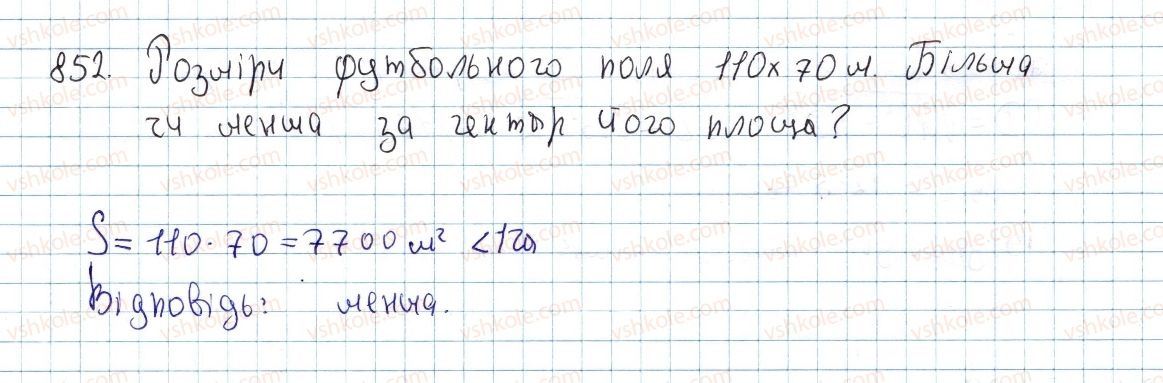 852. Розміри футбольного поля 110х70 м. Більша
чи менша за гектар його площа?
S = 110 · 70 = 7700 м² < 1 га
Відповідь: менша.